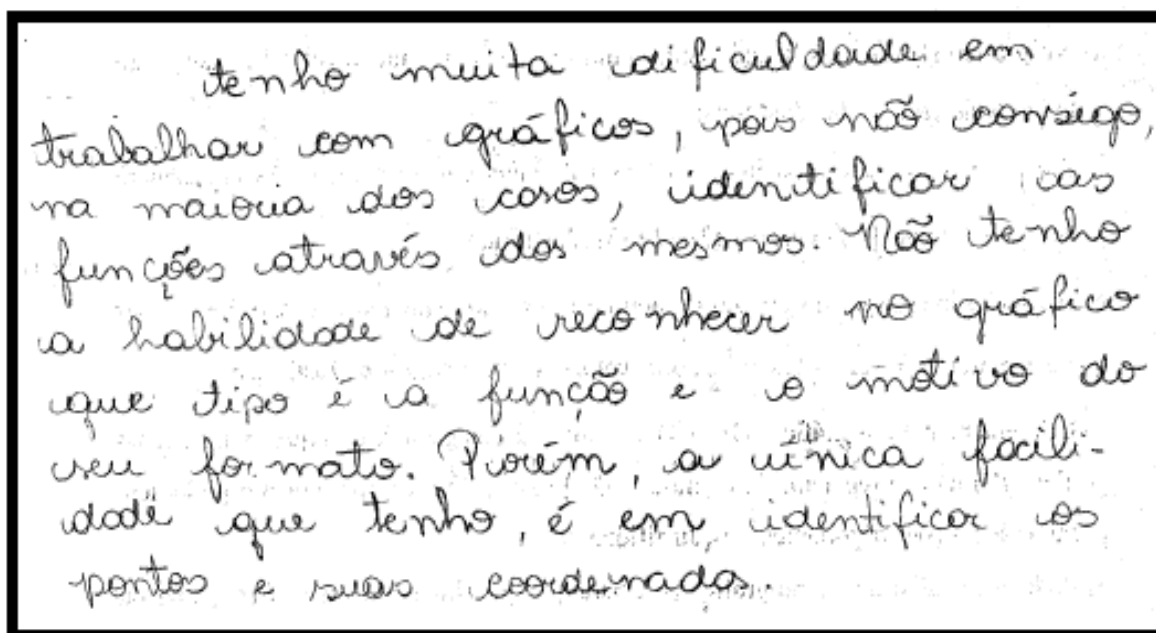 tenho muita dificuldade em
trabalhar com gráficos, pois não consigo,
na maioria dos casos, identificar as
funções através dos mesmos. Não tenho
a habilidade de reconhecer no gráfico
que tipo é a função e o motivo do
seu formato. Porém, a única facili-
dade que tenho, é em identificar os
pontos e suas coordenadas.